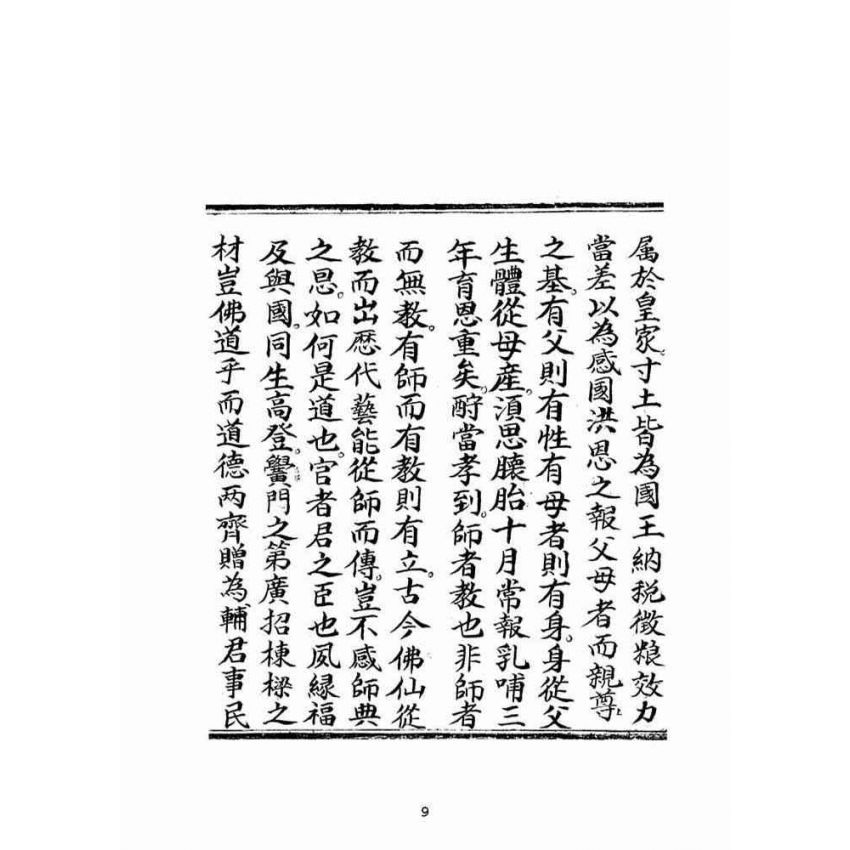 属於皇家。寸土皆為國王納税徵粮效力
當差以為感國洪恩之報父母者而親尊
之基。有父則有性有母者則有身。身從父
生體從母産。湏思懐胎十月常報乳哺三
年育恩重矣。酧當孝到。師者教也非師者
而無教。有師而有教則有立。古今佛仙從
教而出歴代藝能從師而傳。豈不感師典
之恩。如何是道也。官者君之臣也夙縁福
及與國。同生高登。黌門之第廣招棟樑之
材豈佛道乎而道德两齊贈為輔君事民
9